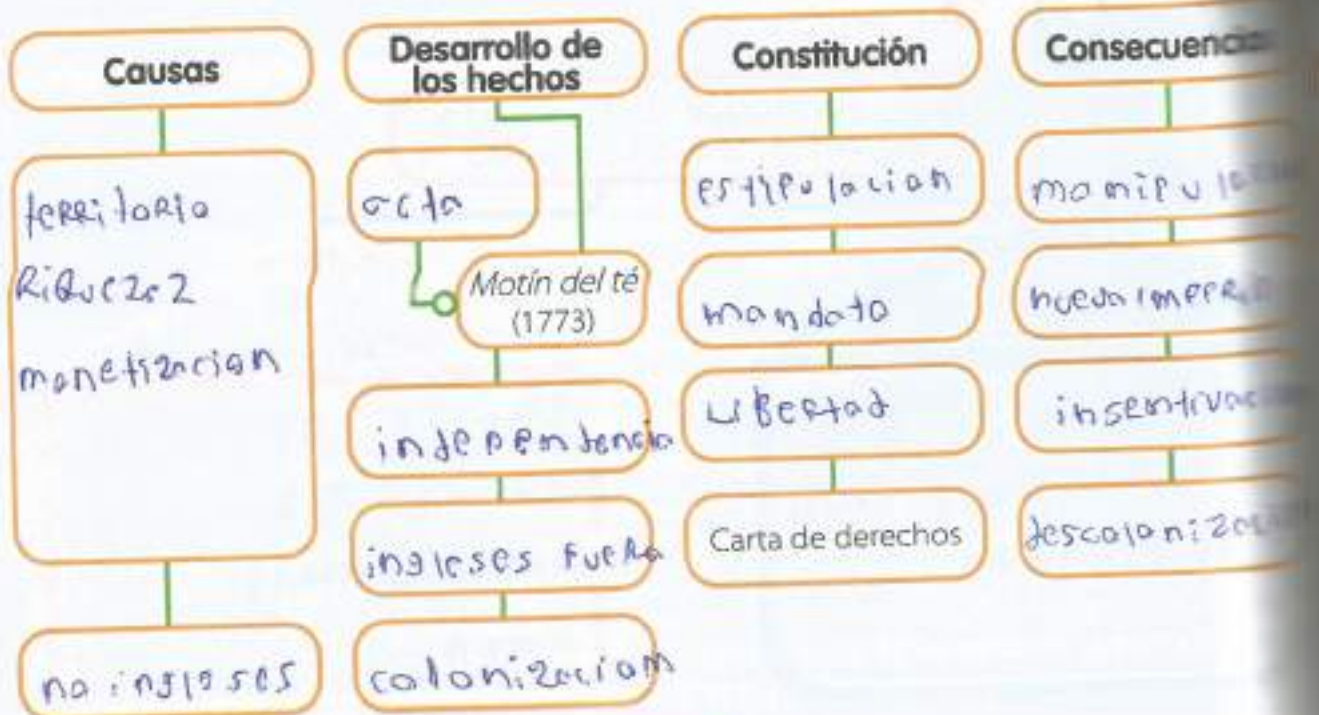 Causas
territorio
Riqueza
monetizacion
no ingleses
Desarrollo de
los hechos
acta
Motín del té
(1773)
independencia
ingleses fuera
colonizacion
Constitución
estipulacion
mandato
Libertad
Carta de derechos
Consecuencia
nueva